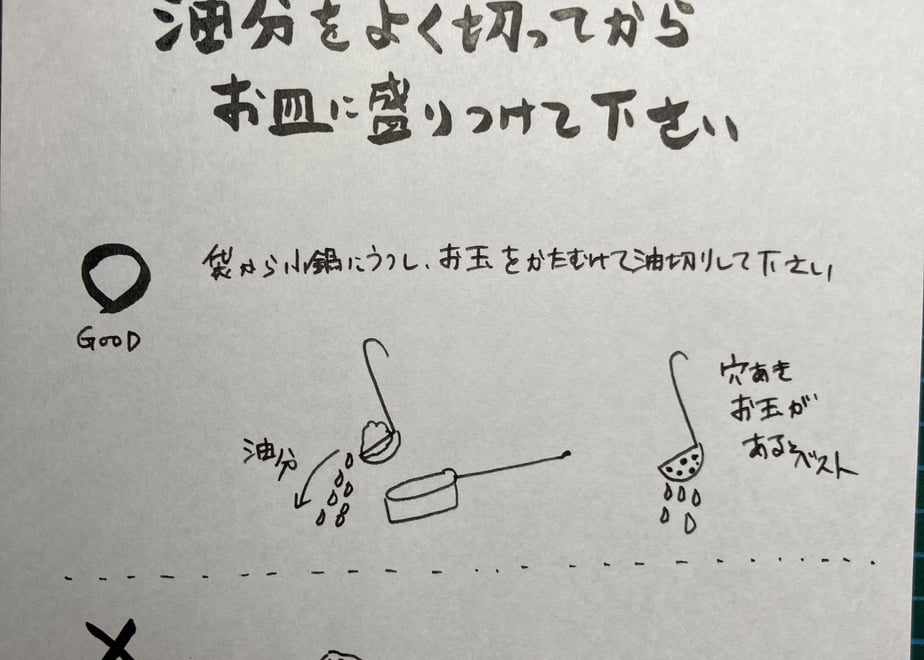 油分をよく切ってから
お皿に盛りつけて下さい
袋から小鍋にうつし、お玉をかたむけて油切りして下さい
GOOD
油分
穴あき
お玉が
あるとベスト